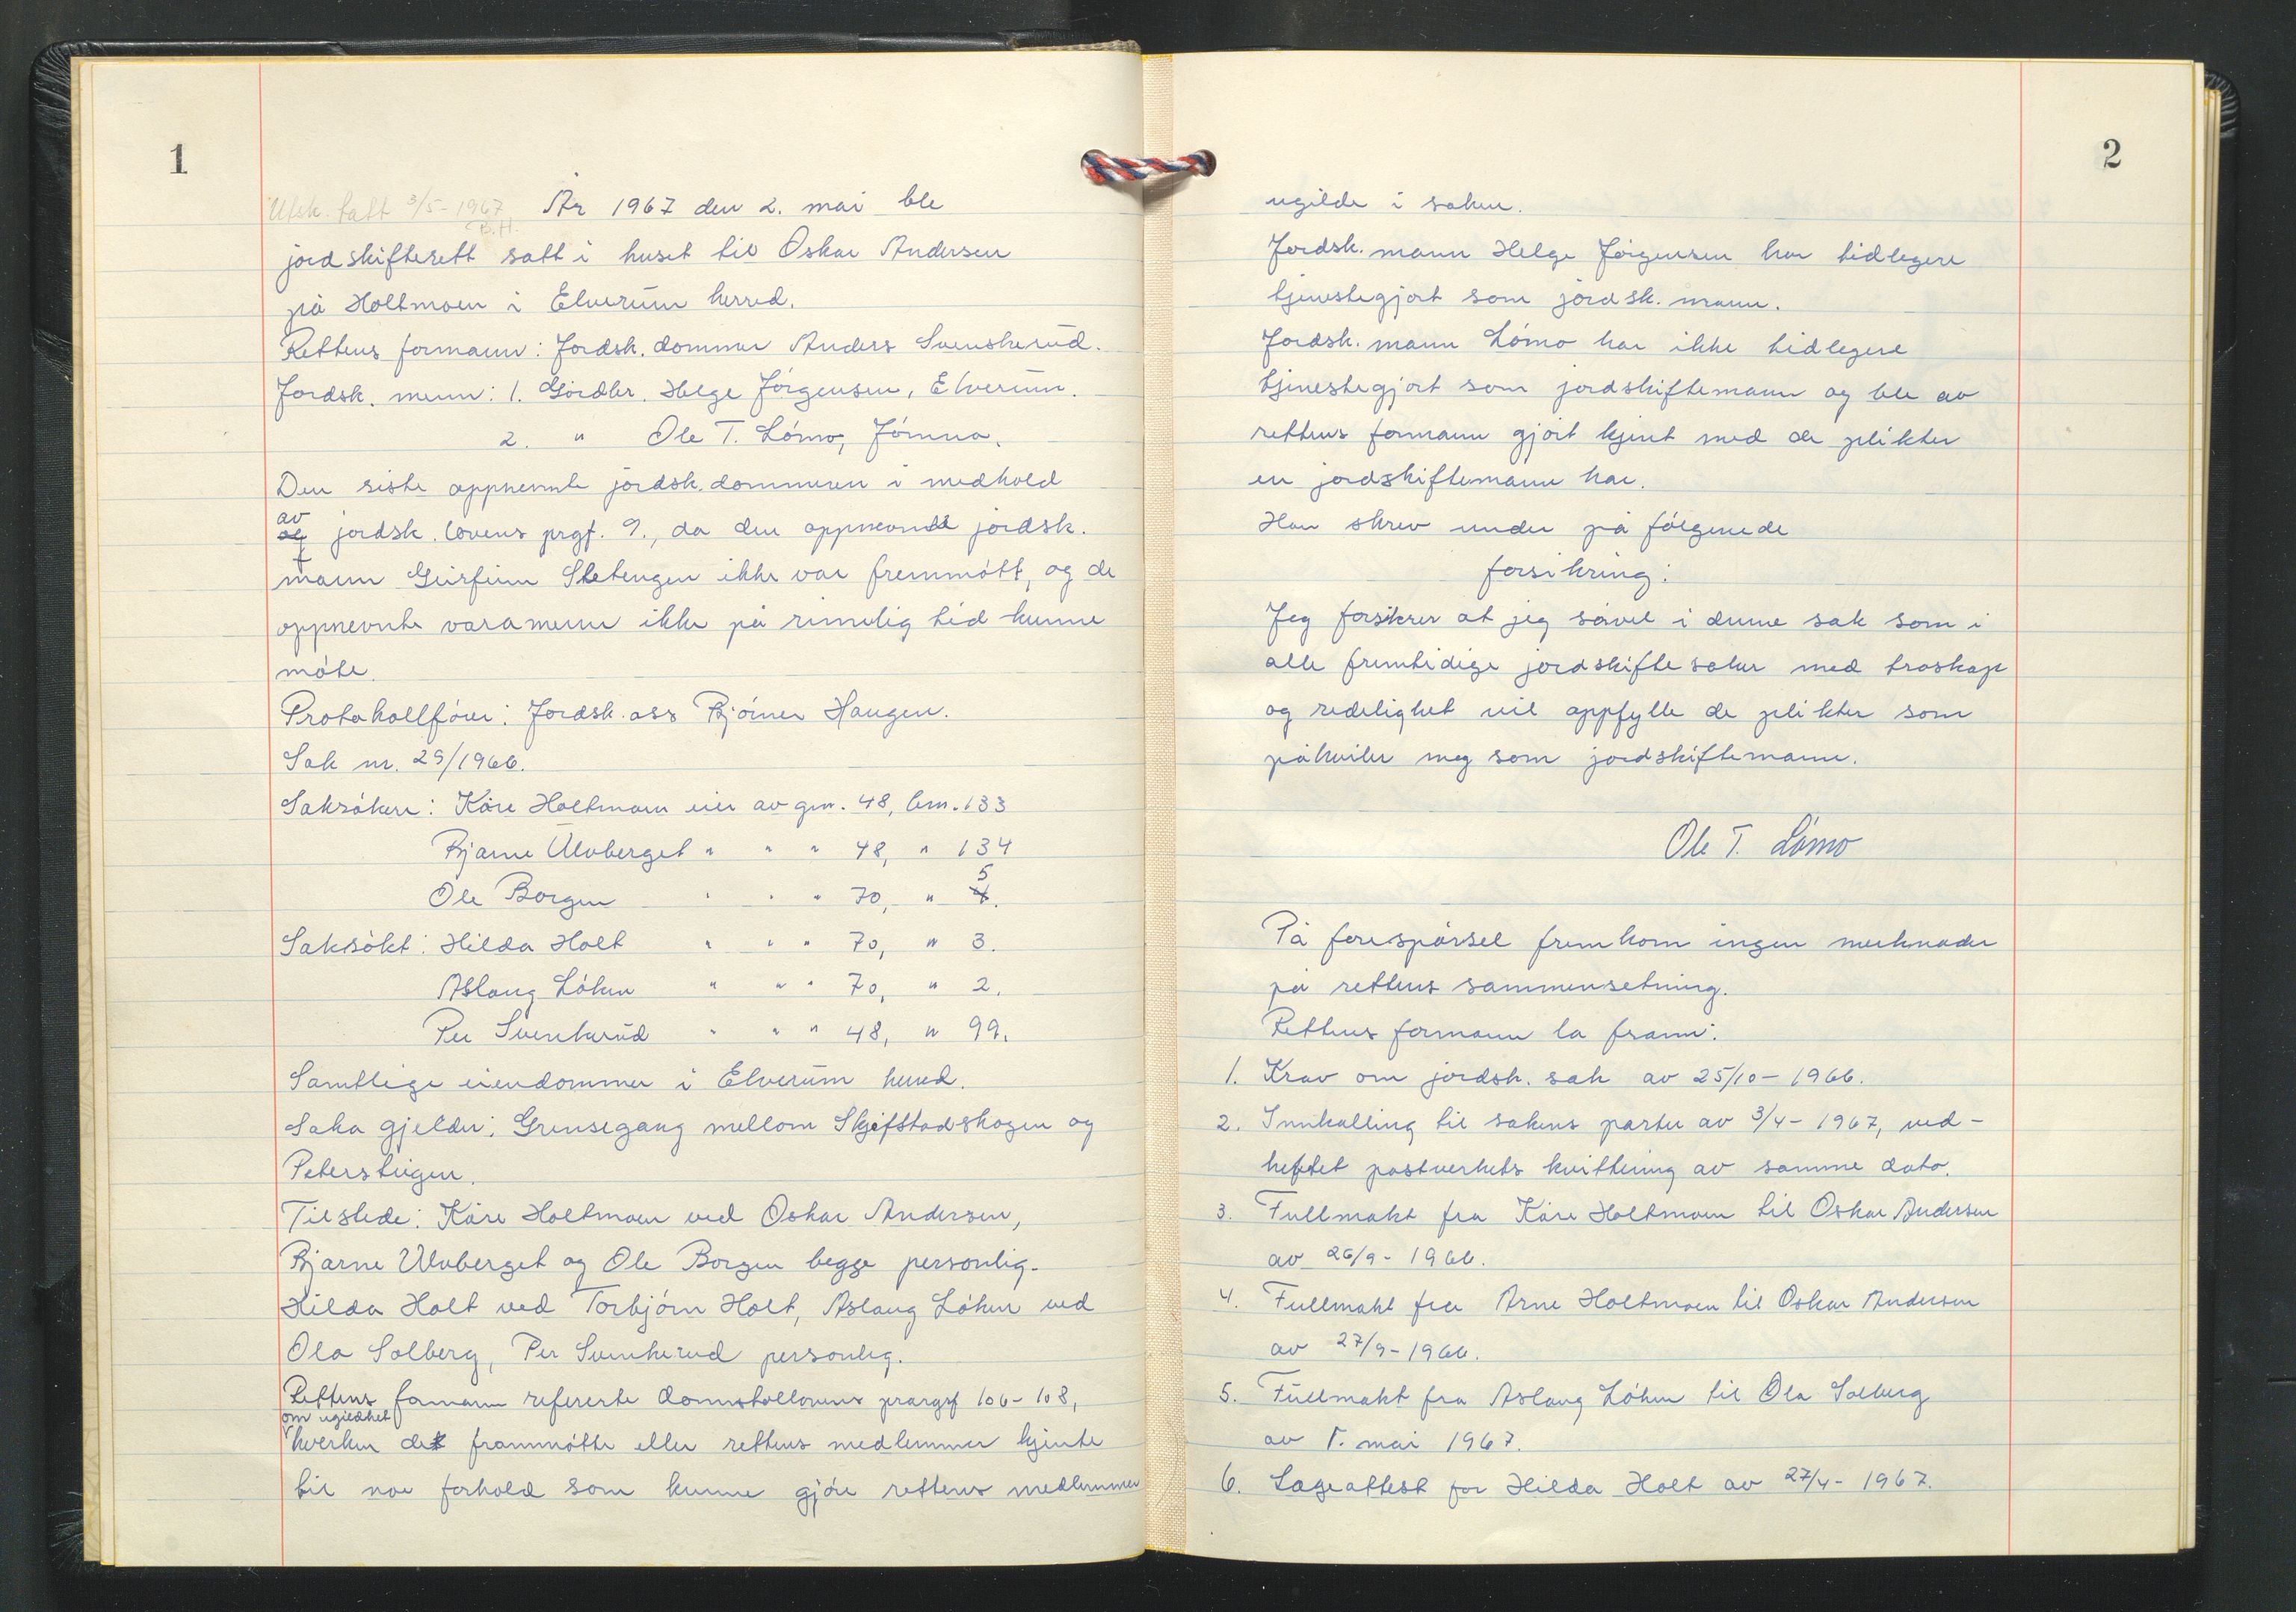 1
Utsk. tatt 3/5-1967 År 1967 den 2. mai ble
B.H.
jordskifterett satt i huset til Oskar Andersen
på Holtmoen i Elverum herred.
Rettens formann: Jordsk. dommer Anders Svenskerud.
Jordsk. menn: 1. Gårdbr. Helge Jörgensen, Elverum.
2. " Ole T. Lömo, Jömna.
Den siste oppnevnte jordsk. dommeren i medhold
av
og jordsk. lovens prgf. 9., da den oppnevnte jordsk.
mann Geirfinn Sletengen ikke var fremmött, og de
oppnevnte varamenn ikke på rimelig tid kunne
möte.
Protokollförer: Jordsk. ass Björner Haugen.
Sak nr. 29/1966.
Saksökere: Kåre Holtmoen eier av gnr. 48, bnr. 133
Bjarne Ulvberget " " " 48, " 134
5
Ole Borgen " " " 70, " 4.
Saksökt: Hilda Holt " " " 70, " 3.
Aslaug Löken " " " 70, " 2.
Per Svenkerud " " " 48, " 99.
Samtlige eiendommer i Elverum herred.
Saka gjelder: Grensegang mellom Skjefstadskogen og
Petersteigen.
Tilstede: Kåre Holtmoen ved Oskar Andersen,
Bjarne Ulvberget og Ole Borgen begge personlig.
Hilda Holt ved Torbjörn Holt, Aslaug Löken ved
Ola Solberg, Per Svenkerud personlig.
Rettens formann refererte domstollovens prargrf 106-108,
om ugildhet
hverken de frammötte eller rettens medlemmer kjente
til noe forhold som kunne gjöre rettens medlemmer
2
ugilde i saken.
Jordsk. mann Helge Jörgensen har tidlegere
tjenestegjort som jordsk. mann.
Jordsk. mann Lömo har ikke tidlegere
tjenestegjort som jordskiftemann og ble av
rettens formann gjort kjent med de plikter
en jordskiftemann har.
Han skrev under på fölgende
forsikring:
Jeg forsikrer at jeg såvel i denne sak som i
alle fremtidige jordskiftesaker med troskap
og redelighet vil oppfylle de plikter som
påhviler meg som jordskiftemann.
Ole T. Lömo
På forespörsel fremkom ingen merknader
på rettens sammensetning.
Rettens formann la fram:
1. Krav om jordsk. sak av 25/10-1966.
2. Innkalling til sakens parter av 3/4-1967, ved-
heftet postverkets kvittering av samme dato.
3. Fullmakt fra Kåre Holtmoen til Oskar Andersen
av 26/9-1966.
4. Fullmakt fra Arne Holtmoen til Oskar Andersen
av 27/9-1966.
5. Fullmakt fra Aslaug Löken til Ola Solberg
av 1. mai 1967.
6. Legeattest for Hilda Holt av 27/4-1967.